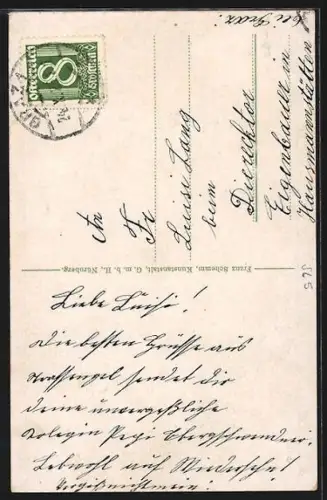 GRAZ 1
Österreich
8
Groschen
An
Fr
Luise Lang
beim
Direcktor
Eigenbauer in
Hausmannstätten
bei Graz!
Franz Schemm, Kunstanstalt, G. m. b. H., Nürnberg.
565
Liebe Luise!
Die besten Grüsse aus
Strassengel sendet dir
deine unvergeßliche
Kolegin Pepi
Lebwohl auf Wiedersehn!
Vergißmichnicht!